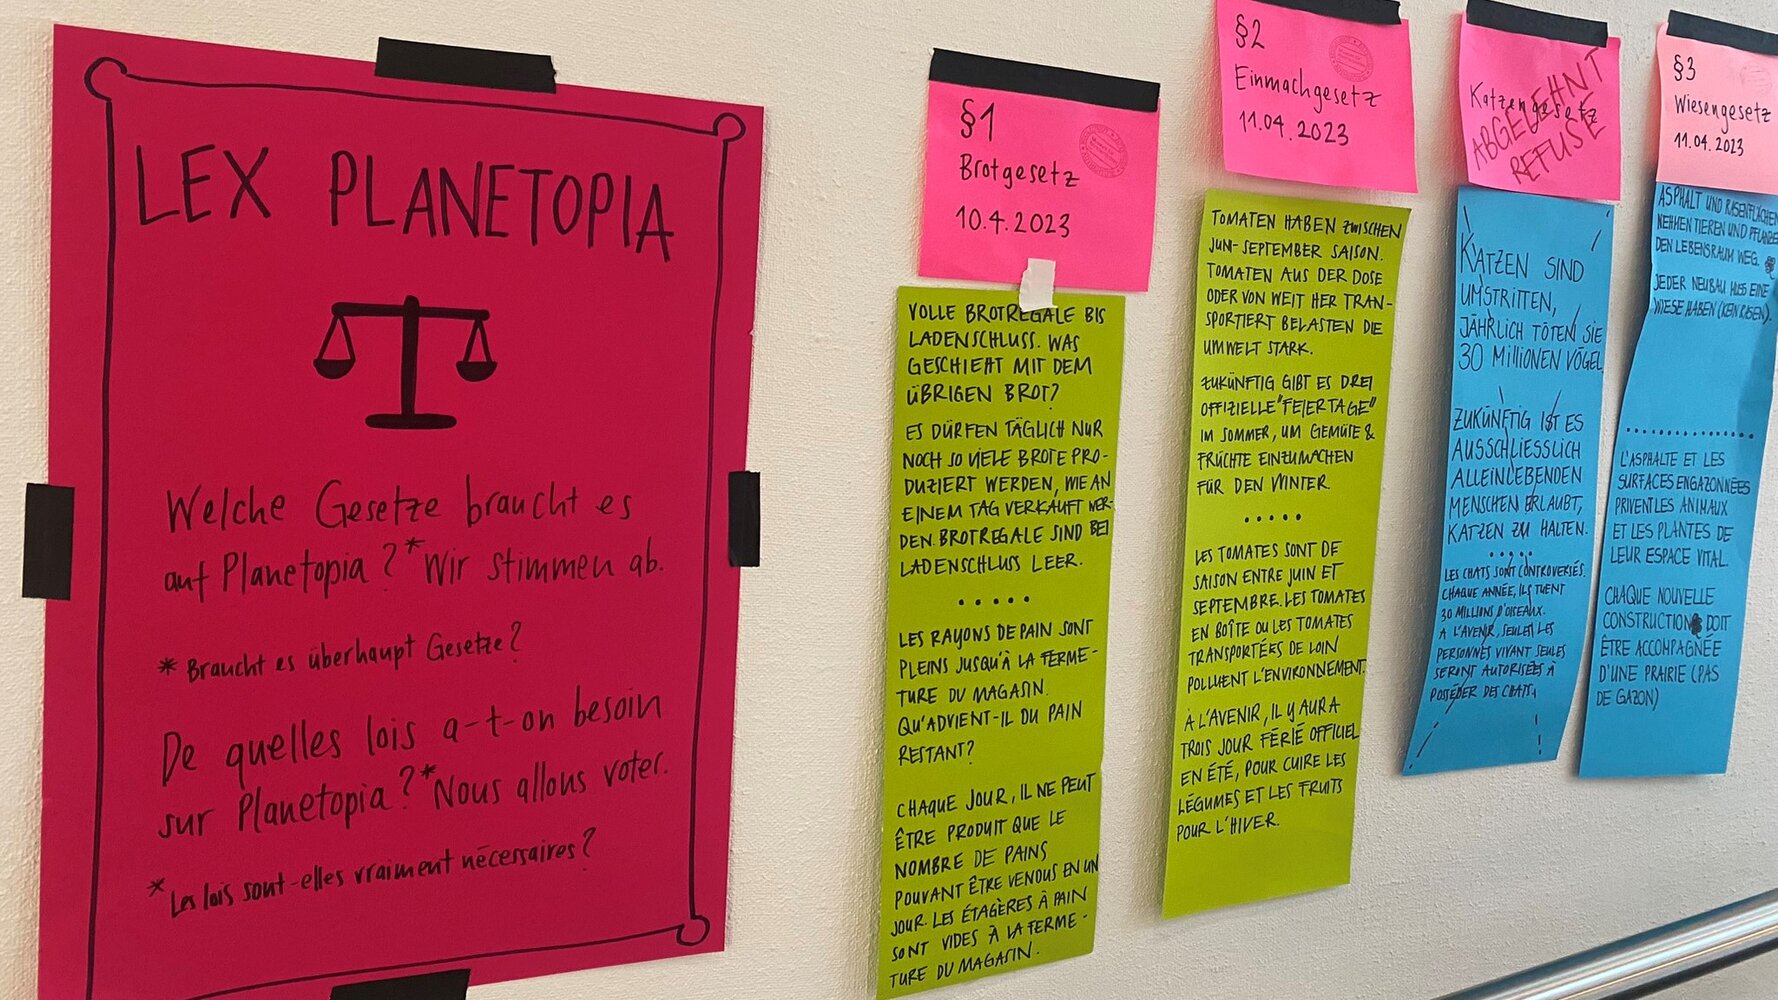 LEX PLANETOPIA
Welche Gesetze braucht es
auf Planetopia?* Wir stimmen ab.
* Braucht es überhaupt Gesetze?
De quelles lois a-t-on besoin
sur Planetopia?* Nous allons voter.
* Les lois sont-elles vraiment nécessaires?
§1
Brotgesetz
10.4.2023
VOLLE BROTREGALE BIS
LADENSCHLUSS. WAS
GESCHIEHT MIT DEM
ÜBRIGEN BROT?
ES DÜRFEN TÄGLICH NUR
NOCH SO VIELE BROTE PRO-
DUZIERT WERDEN, WIE AN
EINEM TAG VERKAUFT WER-
DEN. BROTREGALE SIND BEI
LADENSCHLUSS LEER.
.....
LES RAYONS DE PAIN SONT
PLEINS JUSQU'À LA FERME-
TURE DU MAGASIN.
QU'ADVIENT-IL DU PAIN
RESTANT?
CHAQUE JOUR, IL NE PEUT
ÊTRE PRODUIT QUE LE
NOMBRE DE PAINS
POUVANT ÊTRE VENDUS EN UN
JOUR. LES ÉTAGÈRES À PAIN
SONT VIDES À LA FERME-
TURE DU MAGASIN.
§2
Einmachgesetz
11.04.2023
TOMATEN HABEN ZWISCHEN
JUN-SEPTEMBER SAISON.
TOMATEN AUS DER DOSE
ODER VON WEIT HER TRAN-
SPORTIERT BELASTEN DIE
UMWELT STARK.
ZUKÜNFTIG GIBT ES DREI
OFFIZIELLE "FEIERTAGE"
IM SOMMER, UM GEMÜSE &
FRÜCHTE EINZUMACHEN
FÜR DEN WINTER.
.....
LES TOMATES SONT DE
SAISON ENTRE JUIN ET
SEPTEMBRE. LES TOMATES
EN BOÎTE OU LES TOMATES
TRANSPORTÉES DE LOIN
POLLUENT L'ENVIRONNEMENT.
À L'AVENIR, IL Y AURA
TROIS JOUR FÉRIÉ OFFICIEL
EN ÉTÉ, POUR CUIRE LES
LÉGUMES ET LES FRUITS
POUR L'HIVER.
Katzengesetz
ABGELEHNT
REFUSÉ
KATZEN SIND
UMSTRITTEN,
JÄHRLICH TÖTEN SIE
30 MILLIONEN VÖGEL.
ZUKÜNFTIG IST ES
AUSSCHLIESSLICH
ALLEINLEBENDEN
MENSCHEN ERLAUBT,
KATZEN ZU HALTEN.
.....
LES CHATS SONT CONTROVERSÉS.
CHAQUE ANNÉE, ILS TUENT
30 MILLIONS D'OISEAUX.
A L'AVENIR, SEULES LES
PERSONNES VIVANT SEULES
SERONT AUTORISÉES À
POSSÉDER DES CHATS.
§3
Wiesengesetz
11.04.2023
ASPHALT UND RASENFLÄCHEN
NEHMEN TIEREN UND PFLANZEN
DEN LEBENSRAUM WEG.
JEDER NEUBAU MUSS EINE
WIESE HABEN (KEIN RASEN).
..............
L'ASPHALTE ET LES
SURFACES ENGAZONNÉES
PRIVENT LES ANIMAUX
ET LES PLANTES DE
LEUR ESPACE VITAL.
CHAQUE NOUVELLE
CONSTRUCTION DOIT
ÊTRE ACCOMPAGNÉE
D'UNE PRAIRIE (PAS
DE GAZON)